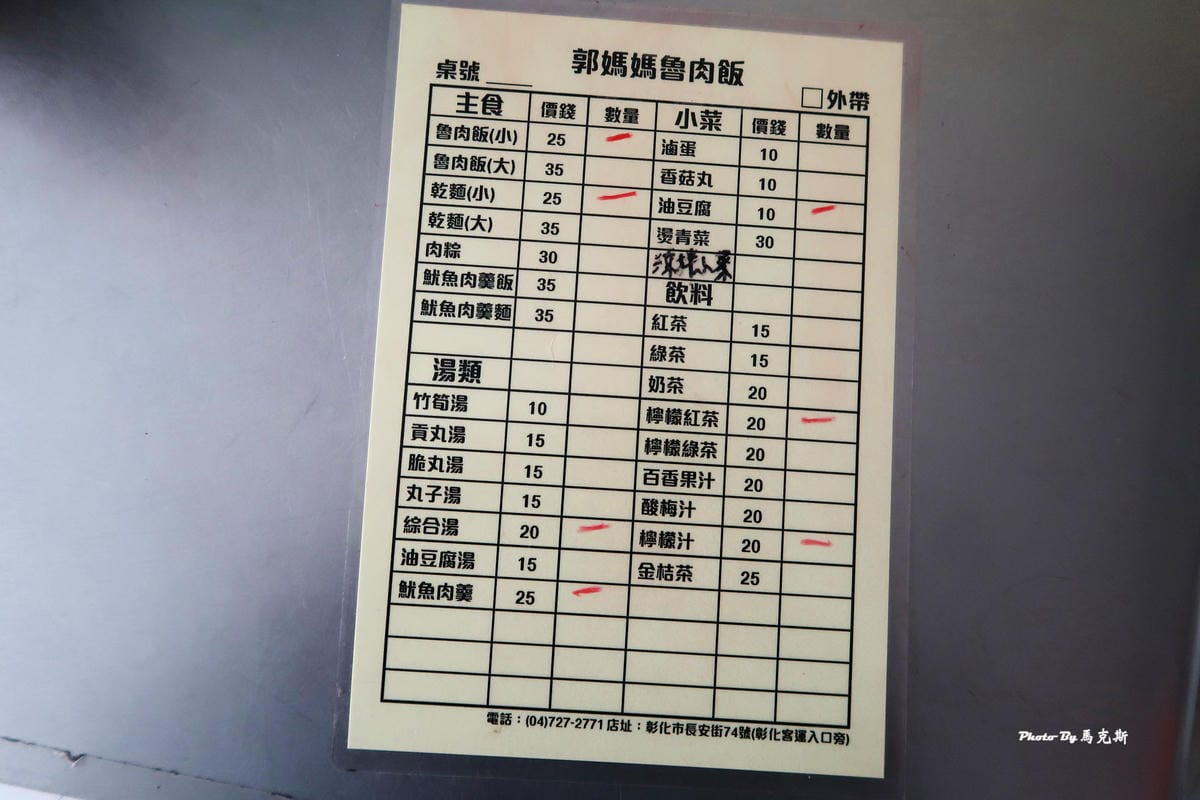 郭媽媽魯肉飯
桌號
外帶
主食 價錢 數量 小菜 價錢 數量
魯肉飯(小) 25 滷蛋 10
魯肉飯(大) 35 香菇丸 10
乾麵(小) 25 油豆腐 10
乾麵(大) 35 燙青菜 30
肉粽 30 涼拌小菜
魷魚肉羹飯 35 飲料
魷魚肉羹麵 35 紅茶 15
綠茶 15
湯類 奶茶 20
竹筍湯 10 檸檬紅茶 20
貢丸湯 15 檸檬綠茶 20
脆丸湯 15 百香果汁 20
丸子湯 15 酸梅汁 20
綜合湯 20 檸檬汁 20
油豆腐湯 15 金桔茶 25
魷魚肉羹 25
電話：(04)727-2771 店址：彰化市長安街74號(彰化客運入口旁)
Photo By 馬克斯